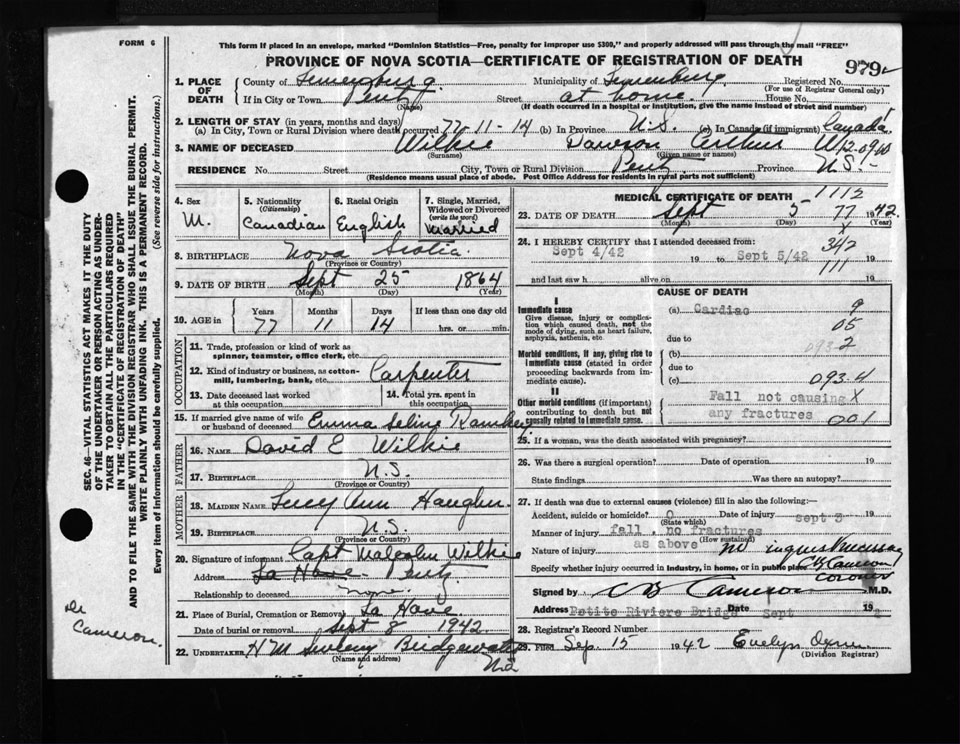 FORM 6
This form if placed in an envelope, marked "Dominion Statistics—Free, penalty for improper use $300," and properly addressed will pass through the mail "FREE"
PROVINCE OF NOVA SCOTIA—CERTIFICATE OF REGISTRATION OF DEATH
979
1. PLACE OF DEATH
County of Lunenburg Municipality of Lunenburg Registered No.
(For use of Registrar General only)
If in City or Town Pentz (Name) Street at home House No.
(If death occurred in a hospital or institution, give the name instead of street and number)
2. LENGTH OF STAY (in years, months and days)
(a) In City, Town or Rural Division where death occurred 77-11-14 (b) In Province N.S. (c) In Canada (if immigrant) Canada
3. NAME OF DECEASED Wilkie Dawson Arthur
(Surname) (Given name or names)
RESIDENCE No. Street City, Town or Rural Division Pentz Province N.S.
(Residence means usual place of abode. Post Office Address for residents in rural parts not sufficient)
4. Sex M.
5. Nationality (Citizenship) Canadian
6. Racial Origin English
7. Single, Married, Widowed or Divorced (write the word) Married
8. BIRTHPLACE Nova Scotia
(Province or Country)
9. DATE OF BIRTH Sept 25 1864
(Month) (Day) (Year)
10. AGE in Years Months Days If less than one day old
77 11 14 hrs. or min.
OCCUPATION
11. Trade, profession or kind of work as spinner, teamster, office clerk, etc.
12. Kind of industry or business, as cotton-mill, lumbering, bank, etc. Carpenter
13. Date deceased last worked at this occupation
14. Total yrs. spent in this occupation
15. If married give name of wife or husband of deceased Emma Selina
FATHER
16. NAME David E Wilkie
17. BIRTHPLACE N.S.
(Province or Country)
MOTHER
18. MAIDEN NAME Lucy Ann
19. BIRTHPLACE N.S.
(Province or Country)
20. Signature of informant Capt Malcolm Wilkie
Address La Have Pentz
Relationship to deceased none
21. Place of Burial, Cremation or Removal La Have
Date of burial or removal Sept 8 1942
22. UNDERTAKER H M Bridgewater
N.S
(Name and address)
MEDICAL CERTIFICATE OF DEATH 1112
23. DATE OF DEATH Sept 5 77 1942
(Month) (Day) (Year)
X
24. I HEREBY CERTIFY that I attended deceased from:
Sept 4/42 19 to Sept 5/42 19
342
and last saw h alive on 111 19
CAUSE OF DEATH
I
Immediate cause
Give disease, injury or complication which caused death, not the mode of dying, such as heart failure, asphyxia, asthenia, etc.
(a) Cardiac 9
05
due to
Morbid conditions, if any, giving rise to immediate cause (stated in order proceeding backwards from immediate cause).
(b) 093-2
due to
(c) 093-4
II
Other morbid conditions (if important) contributing to death but not causally related to immediate cause.
Fall not causing X
any fractures 001
25. If a woman, was the death associated with pregnancy?
26. Was there a surgical operation? Date of operation 19
State findings Was there an autopsy?
27. If death was due to external causes (violence) fill in also the following:
Accident, suicide or homicide? O Date of injury sept 3 19
(State which)
Manner of injury fall, no fractures
(How sustained)
Nature of injury as above no inquest necessary
Specify whether injury occurred in industry, in home, or in public place CB Cameron
Coroner
Signed by C B Cameron M.D.
Address Petite Riviere Bridge Date Sept 19
28. Registrar's Record Number
29. Filed Sep. 15 1942 Evelyn
(Division Registrar)
SEC. 46—VITAL STATISTICS ACT MAKES IT THE DUTY
OF THE UNDERTAKER OR PERSON ACTING AS UNDER-
TAKER TO OBTAIN ALL THE PARTICULARS REQUIRED
IN THE "CERTIFICATE OF REGISTRATION OF DEATH"
AND TO FILE THE SAME WITH THE DIVISION REGISTRAR WHO SHALL ISSUE THE BURIAL PERMIT.
WRITE PLAINLY WITH UNFADING INK. THIS IS A PERMANENT RECORD.
Every item of information should be carefully supplied. (See reverse side for instructions.)
Dr
Cameron.